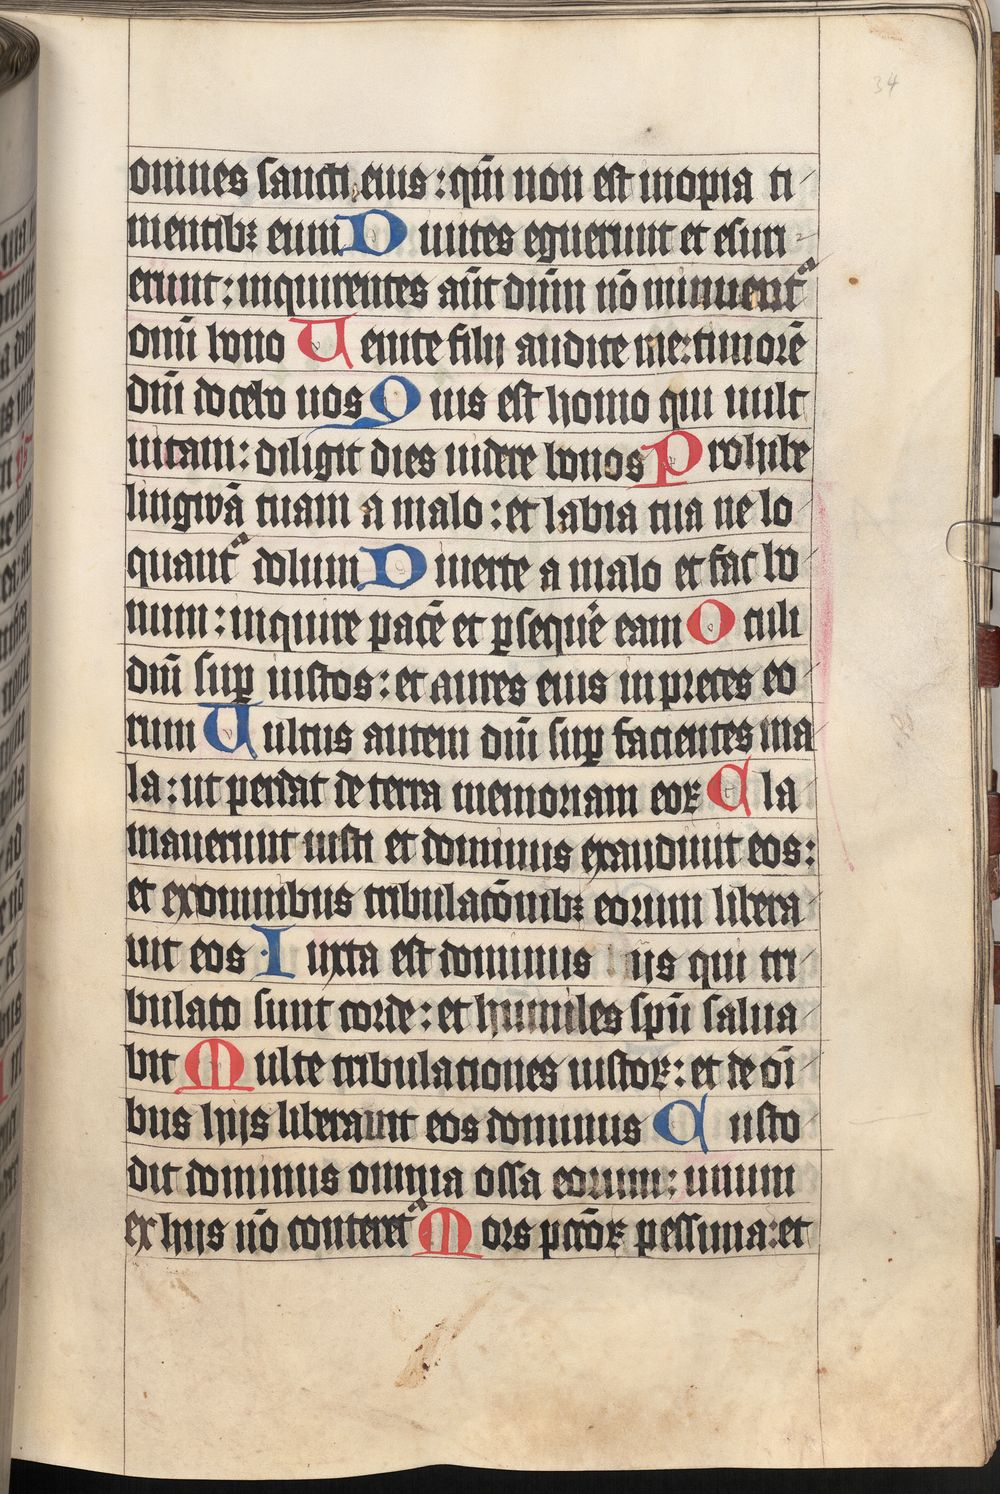 34
omnes sancti eius : qm̄ non est inopia ti
mentibꝫ eum D iuites eguerunt et esuri
erunt : inquirentes aūt dūm nō minuentᷣ
omī bono U enite filii audite me : timorē
dm̄i docebo uos Q uis est homo qui uult
uitam : diligit dies uidere bonos P rohibe
lingwā tuam a malo : et labia tua ne lo
quantᷣ dolum D iuerte a malo et fac bo
num : inquire pacē et ꝑsequē eam O culi
dm̄i suꝑ iustos : et aures eius in preces eo
rum U ultus autem dm̄i suꝑ facientes ma
la : ut perdat de terra memoriam eoꝝ C la
mauerunt iusti et dominus exaudiuit eos :
et ex omnibus tribulacōnibꝫ eorum libera
uit eos I uxta est dominus iis qui tri
bulato sunt corde : et humiles spū salua
bit M ulte tribulationes iustoꝝ : et de oī
bus hijs liberauit eos dominus C usto
dit dominus omnia ossa eorum : unum
ex hijs nō conteretᷣ M ors pctōꝝ pessima : et